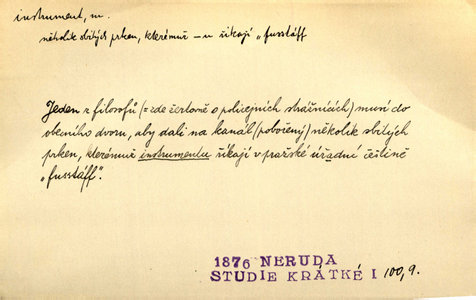 instrument, m.
několik sbitých prken, kterémuž – u říkají „fusstäff
Jeden z filosofů (= zde žertovně o policejních strážnících) musí do
obecního dvoru, aby dali na kanál (pobořený) několik sbitých
prken, kterémuž instrumentu říkají v pražské úřadní češtině
„fusstäff".
1876 NERUDA
STUDIE KRÁTKÉ I 100,9.